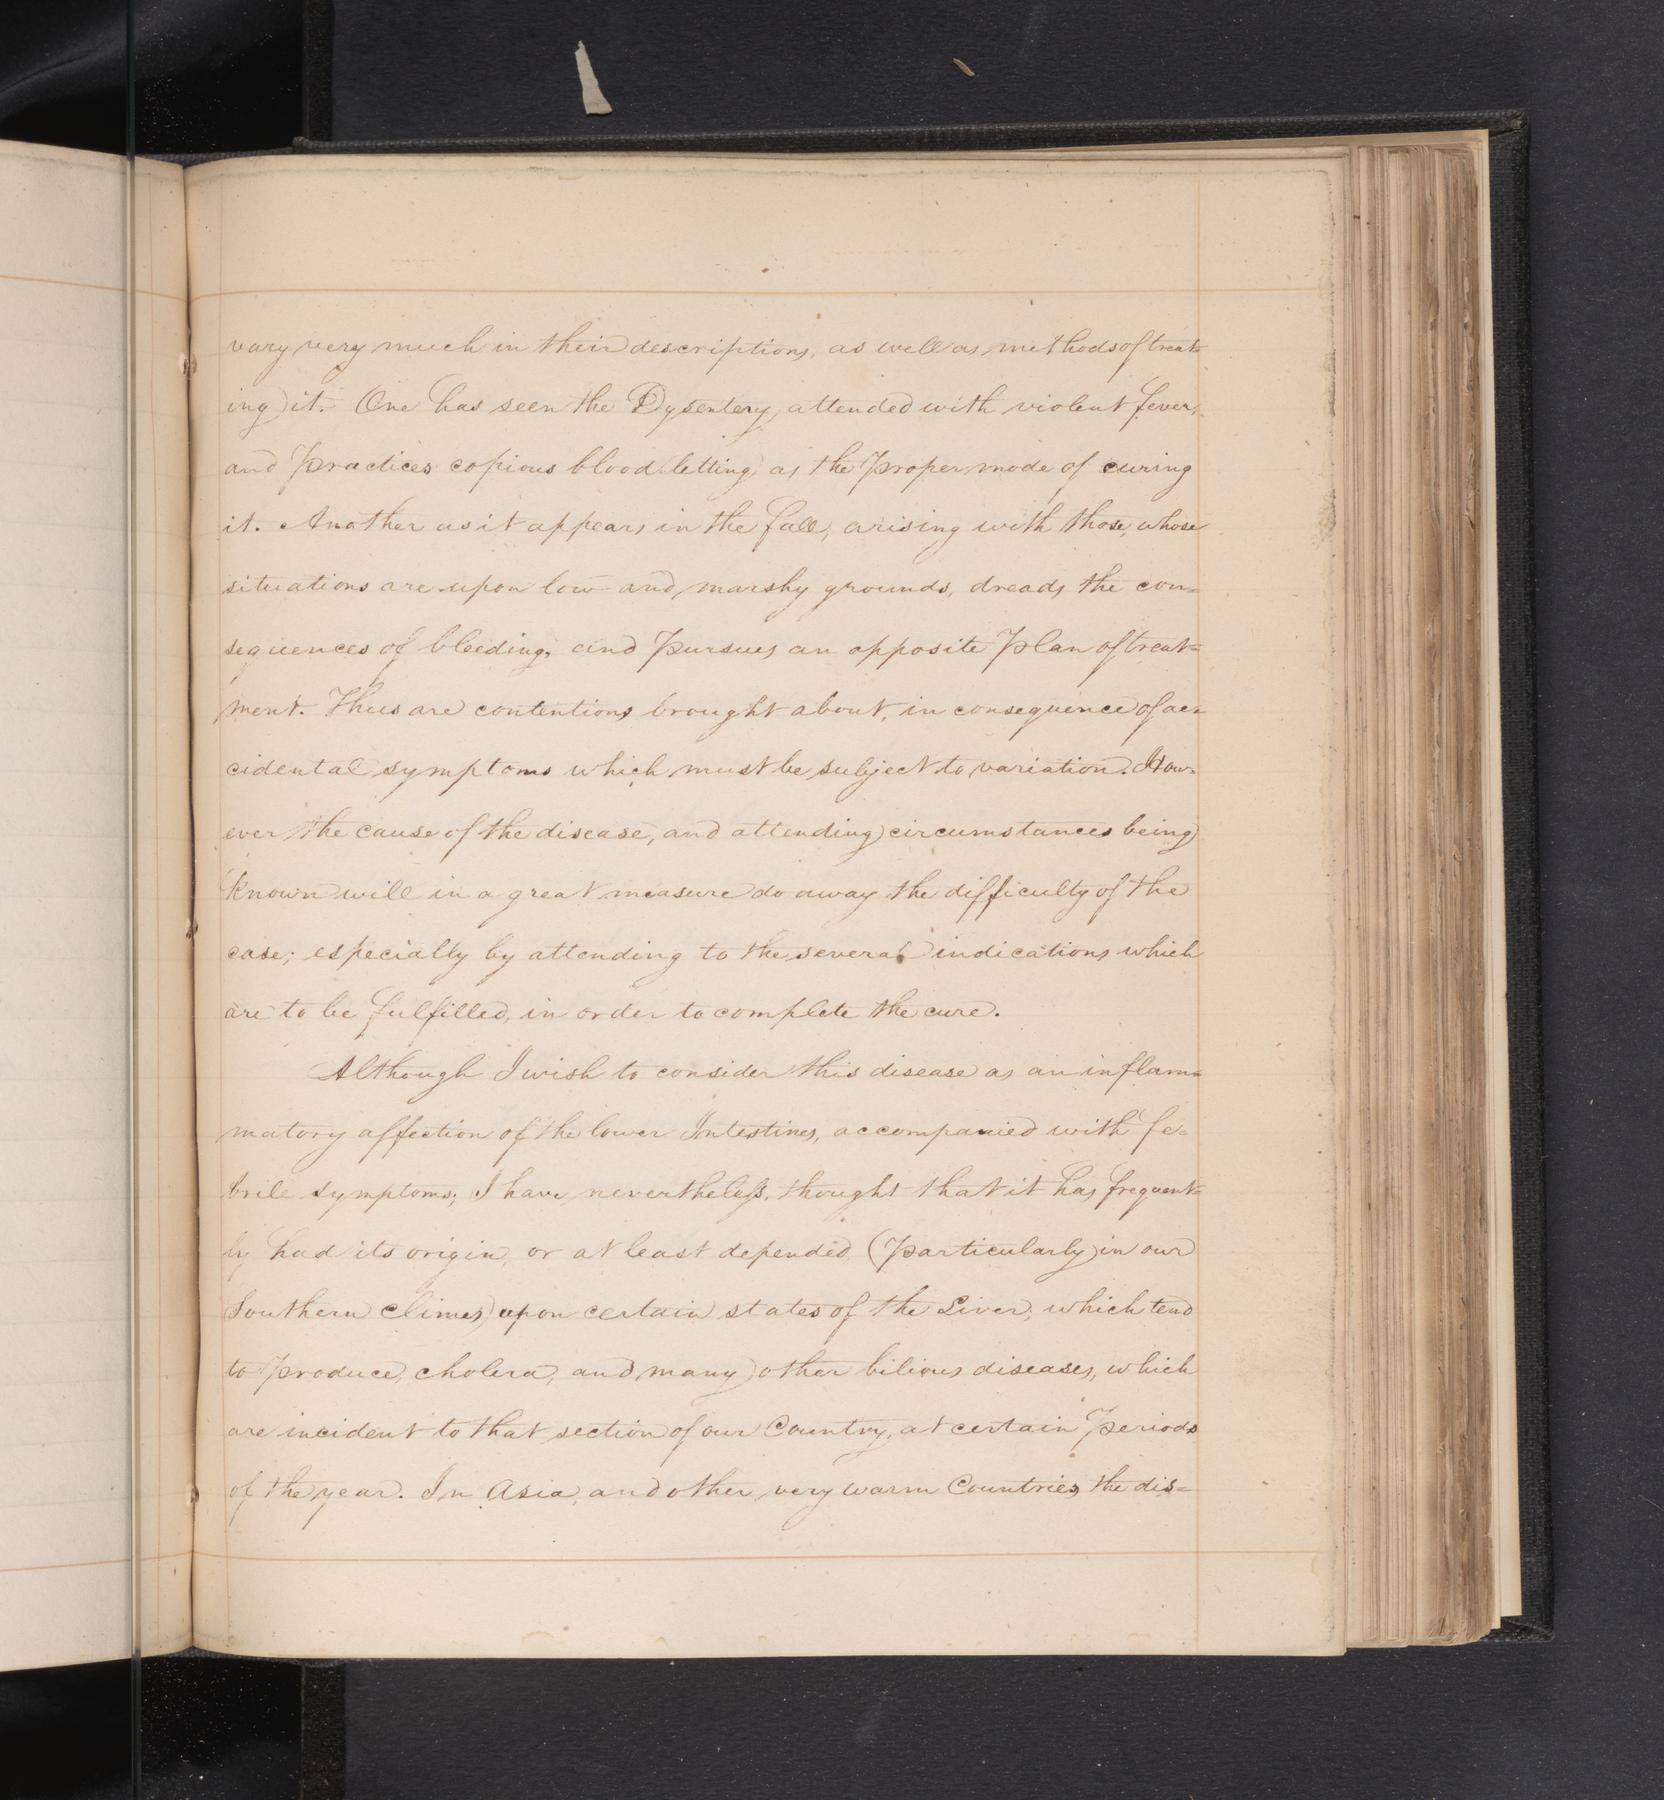 vary very much in their descriptions, as well as methods of treat-
ing it. One has seen the Dysentery, attended with violent fever,
and practices copious blood letting, as the proper mode of curing
it. Another as it appears in the fall, arising with those, whose
situations are upon low and marshy grounds, dreads the con-
sequences of bleeding, and pursues an opposite plan of treat-
ment. Thus are contentions brought about, in consequence of ac-
cidental symptoms which must be subject to variation. How-
ever the cause of the disease, and attending circumstances being
known will in a great measure do away the difficulty of the
case; especially by attending to the several indications which
are to be fulfilled, in order to complete the cure.
Although I wish to consider this disease as an inflam-
matory affection of the lower Intestines, accompanied with fe-
brile symptoms; I have nevertheless, thought that it has frequent-
ly had its origin, or at least depended (particularly in our
Southern climes) upon certain states of the Liver, which tend
to produce, cholera, and many other bilious diseases, which
are incident to that section of our Country, at certain periods
of the year. In Asia, and other very warm Countries, the dis-